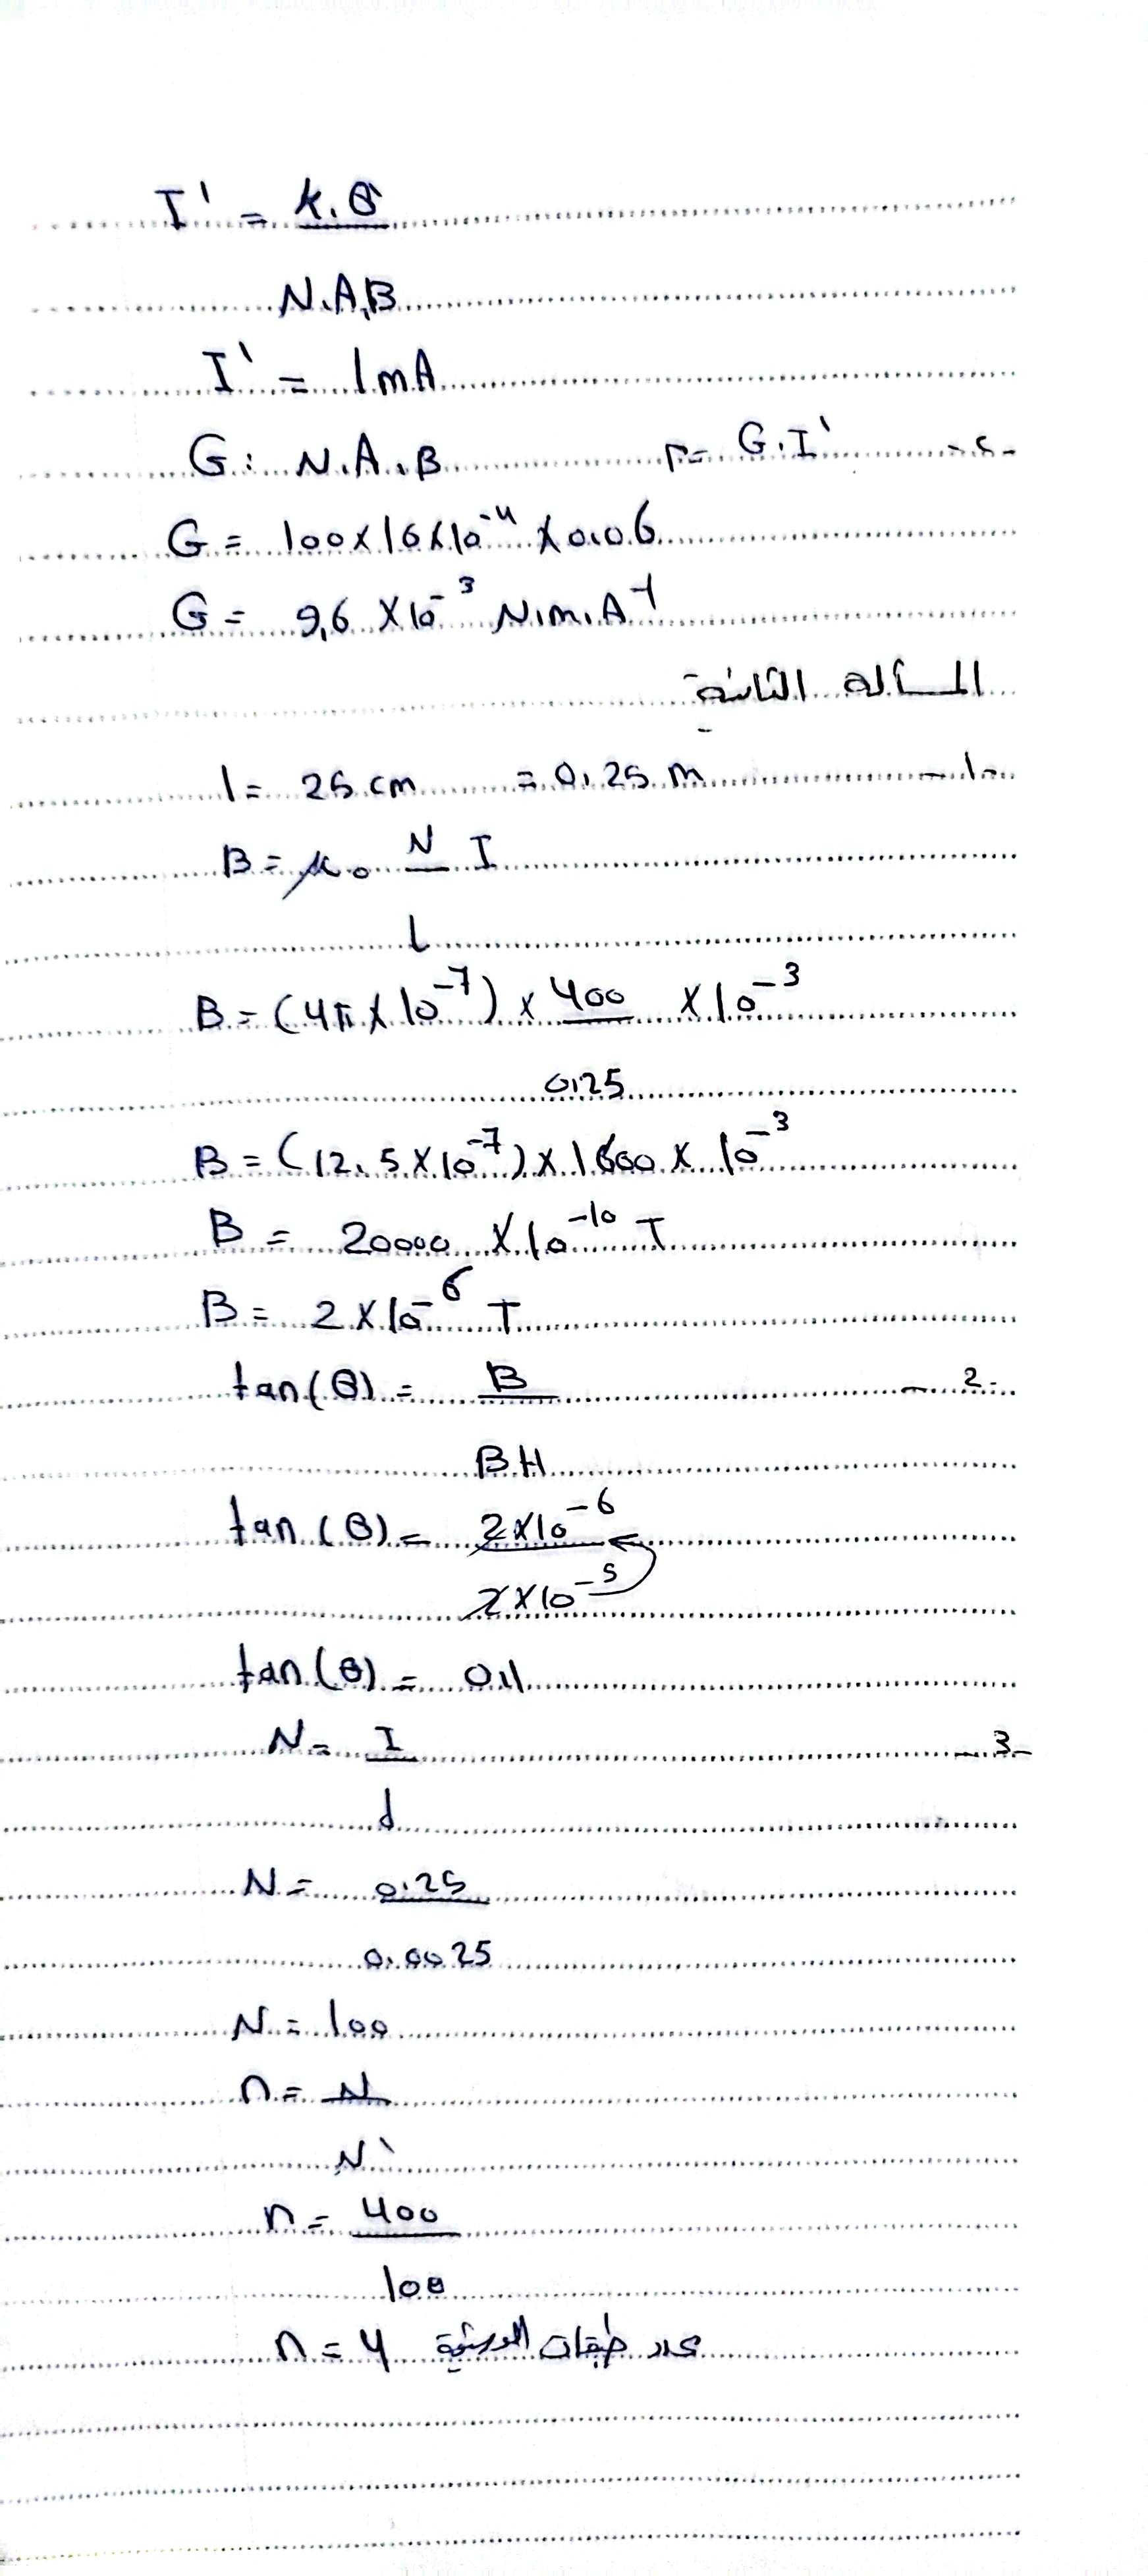 I' = k.θ'
N.A.B
I' = 1mA
G = N.A.B Γ= G.I' -2-
G = 100×16×10⁻⁴ × 0,06
G = 9,6 ×10⁻³ N.m.A⁻¹
المسألة الثانية
l = 25 cm = 0,25 m -1-
B = μ₀ N I
l
B = (4π×10⁻⁷) × 400 ×10⁻³
0,25
B = (12,5×10⁻⁷) × 1600 × 10⁻³
B = 20000 ×10⁻¹⁰ T
B = 2×10⁻⁶ T
tan(θ) = B -2-
BH
tan(θ) = 2×10⁻⁶
2×10⁻⁵
tan(θ) = 0,1
N = l -3-
d
N = 0,25
0,0025
N = 100
n = N
N'
n = 400
100
n = 4 عدد طبقات الوشيعة